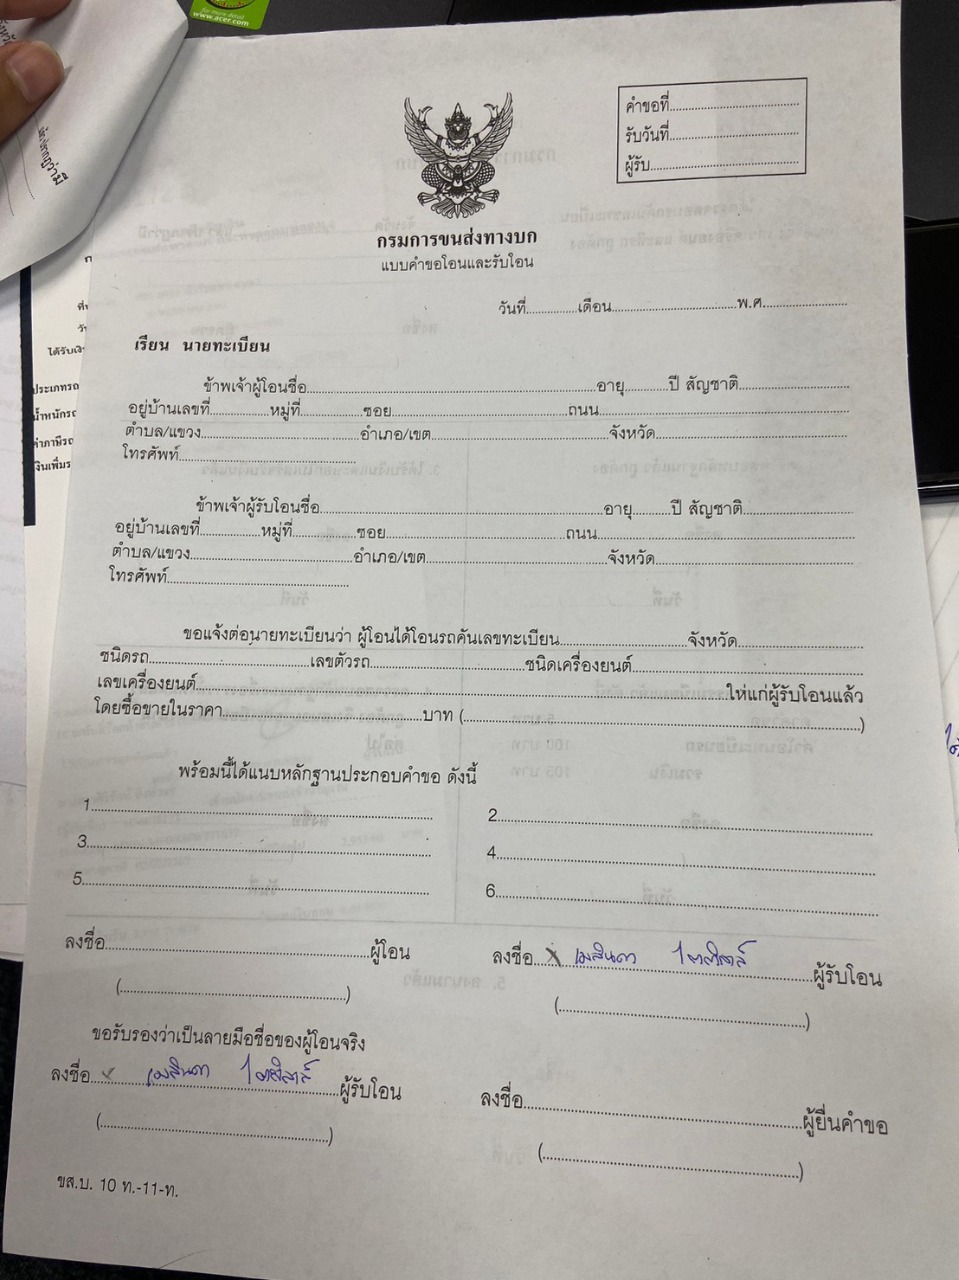 for more detail
www.acer.com
คำขอที่
รับวันที่
ผู้รับ
กรมการขนส่งทางบก
แบบคำขอโอนและรับโอน
วันที่ เดือน พ.ศ.
เรียน นายทะเบียน
ข้าพเจ้าผู้โอนชื่อ อายุ ปี สัญชาติ
อยู่บ้านเลขที่ หมู่ที่ ซอย ถนน
ตำบล/แขวง อำเภอ/เขต จังหวัด
โทรศัพท์
ข้าพเจ้าผู้รับโอนชื่อ อายุ ปี สัญชาติ
อยู่บ้านเลขที่ หมู่ที่ ซอย ถนน
ตำบล/แขวง อำเภอ/เขต จังหวัด
โทรศัพท์
ขอแจ้งต่อนายทะเบียนว่า ผู้โอนได้โอนรถคันเลขทะเบียน จังหวัด
ชนิดรถ เลขตัวรถ ชนิดเครื่องยนต์
เลขเครื่องยนต์ ให้แก่ผู้รับโอนแล้ว
โดยซื้อขายในราคา บาท ( )
พร้อมนี้ได้แนบหลักฐานประกอบคำขอ ดังนี้
1 2
3 4
5 6
ลงชื่อ ผู้โอน ลงชื่อ x เมสินดา ผู้รับโอน
( ) ( )
ขอรับรองว่าเป็นลายมือชื่อของผู้โอนจริง
ลงชื่อ x เมสินดา ผู้รับโอน ลงชื่อ ผู้ยื่นคำขอ
( ) ( )
ขส.บ. 10 ท.-11-ท.